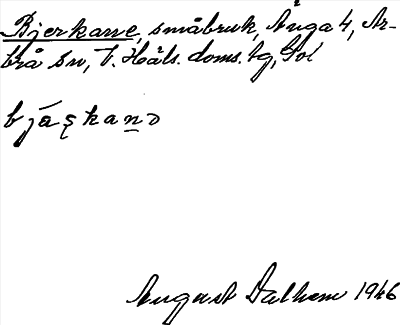 Bjerkarne, småbruk, Ånga 4, Ar-
brå sn, V. Häls. doms. tg,
bjäşkaṉɔ
August Dalhem 1946